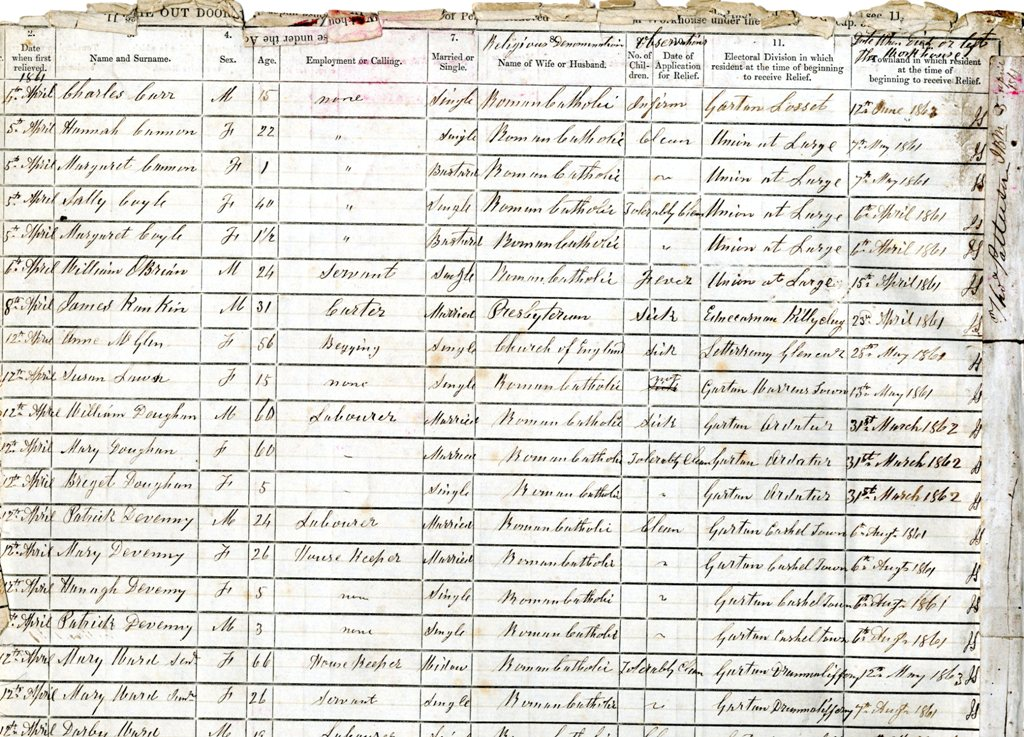 OUT DOOR
under the
sec. 11,
2. 3. 4. 5. 6. 7. 8. 11.
Religious Denomination Observations Date When died or left the Workhouse
Date when first relieved. Name and Surname. Sex. Age. Employment or Calling. Married or Single. Name of Wife or Husband. No. of Children. Date of Application for Relief. Electoral Division in which resident at the time of beginning to receive Relief. Townland in which resident at the time of beginning to receive Relief.
1861
4th April Charles Carr M 15 none Single Roman Catholic Infirm Gartan Losset 12th June 1863
5th April Hannah Cannon F 22 " Single Roman Catholic Clean Union at Large 7th May 1861
5th April Margaret Cannon F 1 " Bastard Roman Catholic " Union at Large 7th May 1861
5th April Sally Coyle F 40 " Single Roman Catholic Tolerably Clean Union at Large 6th April 1861
5th April Margaret Coyle F 1½ " Bastard Roman Catholic " Union at Large 6th April 1861
6th April William O'Brian M 24 Servant Single Roman Catholic Fever Union at Large 15th April 1861
8th April James Rankin M 31 Carter Married Presbyterian Sick Ednecarnan 23rd April 1861
12th April Anne McGlen F 56 Begging Single Church of England Sick Letterkenny 25th May 1861
12th April Susan F 15 none Single Roman Catholic Gartan 13th May 1861
12th April William Doughan M 60 Labourer Married Roman Catholic Sick Gartan Ardatur 31st March 1862
12th April Mary Doughan F 60 " Married Roman Catholic Tolerably Clean Gartan Ardatur 31st March 1862
12th April Briget Doughan F 5 " Single Roman Catholic " Gartan Ardatur 31st March 1862
12th April Patrick Devenny M 24 Labourer Married Roman Catholic Clean Gartan Cashel Town 6th Augt 1861
12th April Mary Devenny F 26 House Keeper Married Roman Catholic " Gartan Cashel Town 6th Augt 1861
12th April Hanagh Devenny F 5 none Single Roman Catholic " Gartan Cashel Town 6th Augt 1861
12th April Patrick Devenny M 3 none Single Roman Catholic " Gartan Cashel Town 6th Augt 1861
12th April Mary Ward Senr F 66 House Keeper Widow Roman Catholic Tolerably Clean Gartan Drumnaliffony 12th May 1863
12th April Mary Ward Junr F 26 Servant Single Roman Catholic " Gartan Drumnaliffony 7th Augt 1861
12th April Darby Ward M 19 Labourer Single Roman Catholic